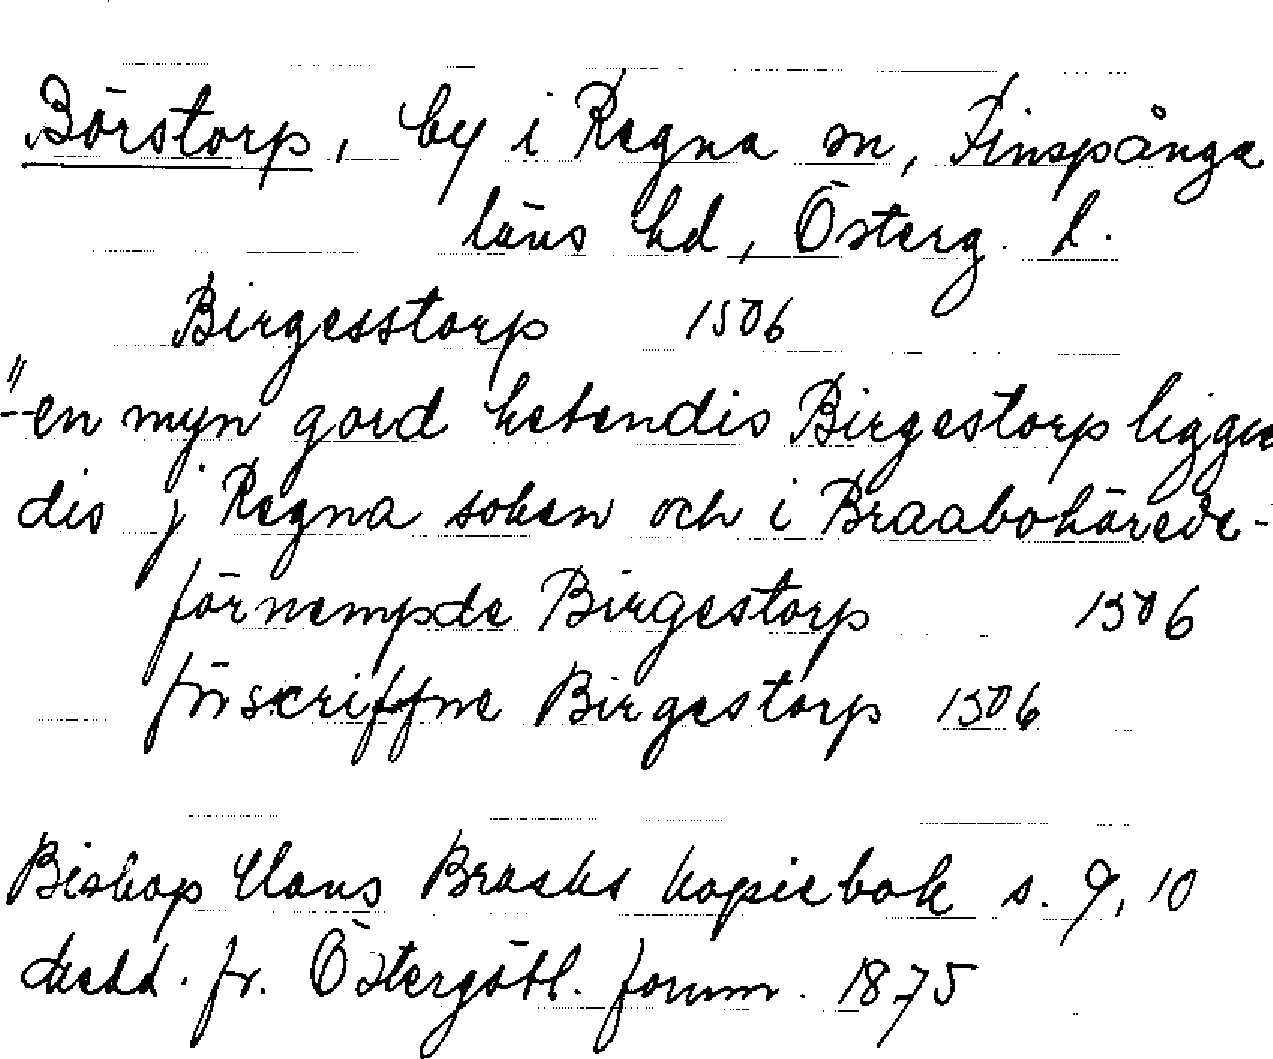 Börstorp, by i Regna sn, Finspånga
läns hd, Österg. l.
Birgesstorp 1506
"-en myn gord hetendis Birgestorp liggen
dis j Regna soken och i Braabohärede-
förnempde Birgestorp 1506
förscriffne Birgestorp 1506
Biskop Hans Brasks kopiebok s. 9, 10
Medd. fr. Östergötl. fornm. 1875